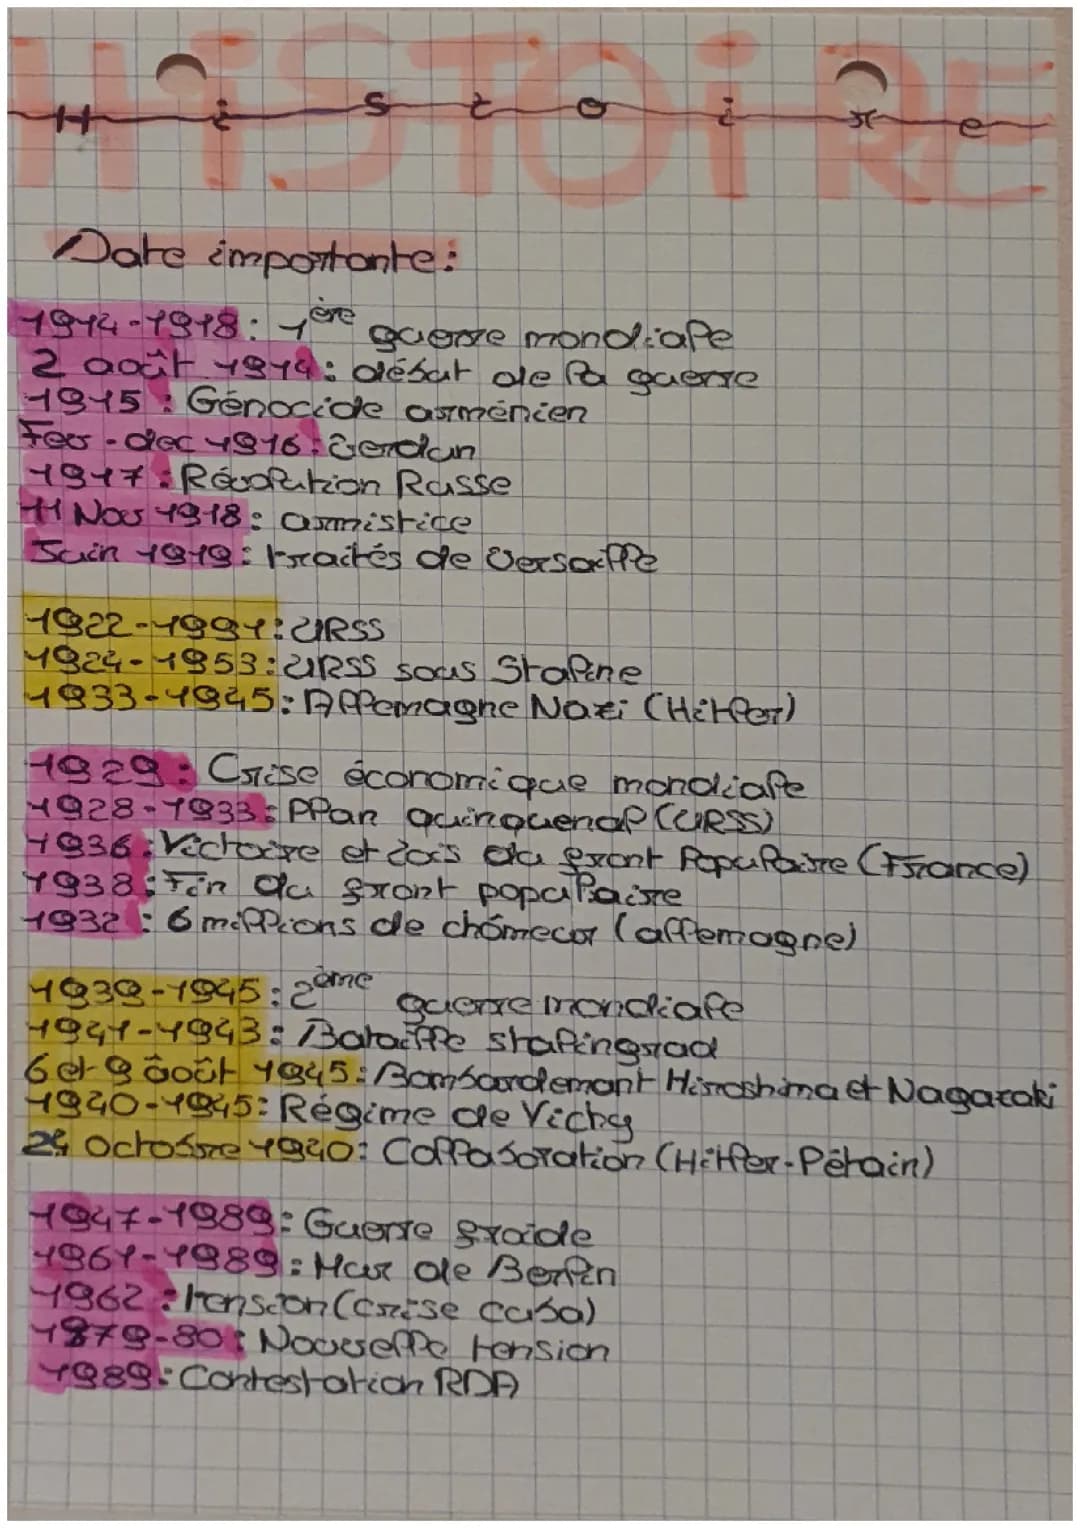 HiSTOiRE
Histoire
Date importante:
1914-1918: 1ère guerre mondiale
2 août 1914: début de la guerre
1915: Génocide arménien
Fev-dec 1916: Verdun
1917: Révolution Russe
11 Nov 1918: armistice
Juin 1919: traités de Versaille
1922-1991: URSS
1924-1953: URSS sous Staline
1933-1945: Allemagne Nazi (Hitler)
1929: Crise économique mondiale
1928-1933: Plan quinquenal (URSS)
1936: Victoire et lois du front Populaire (France)
1938: Fin du front populaire
1932: 6 millions de chômeur (allemagne)
1939-1945: 2ème guerre mondiale
1941-1943: Bataille stalingrad
6 et 9 âoût 1945: Bombardemant Hiroshima et Nagazaki
1940-1945: Régime de Vichy
24 Octobre 1940: Collaboration (Hitler-Pétain)
1947-1989: Guerre froide
1961-1989: Mur de Berlin
1962: tension (crise cuba)
1979-80: Nouvelle tension
1989: Contestation RDA